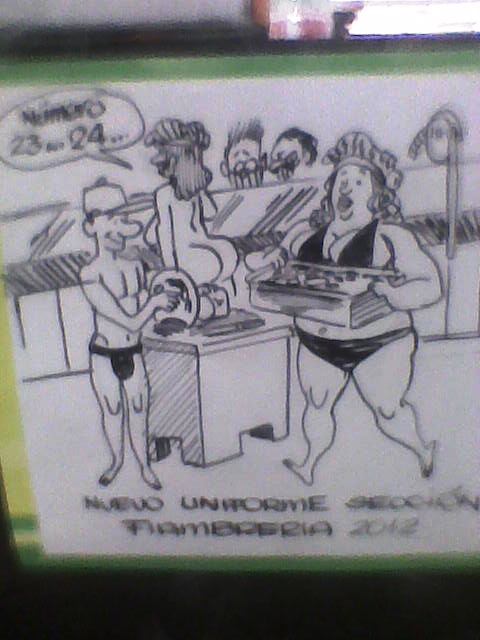 NÚMERO
23... 24...
NUEVO UNIFORME SECCIÓN
FIAMBRERIA 2012